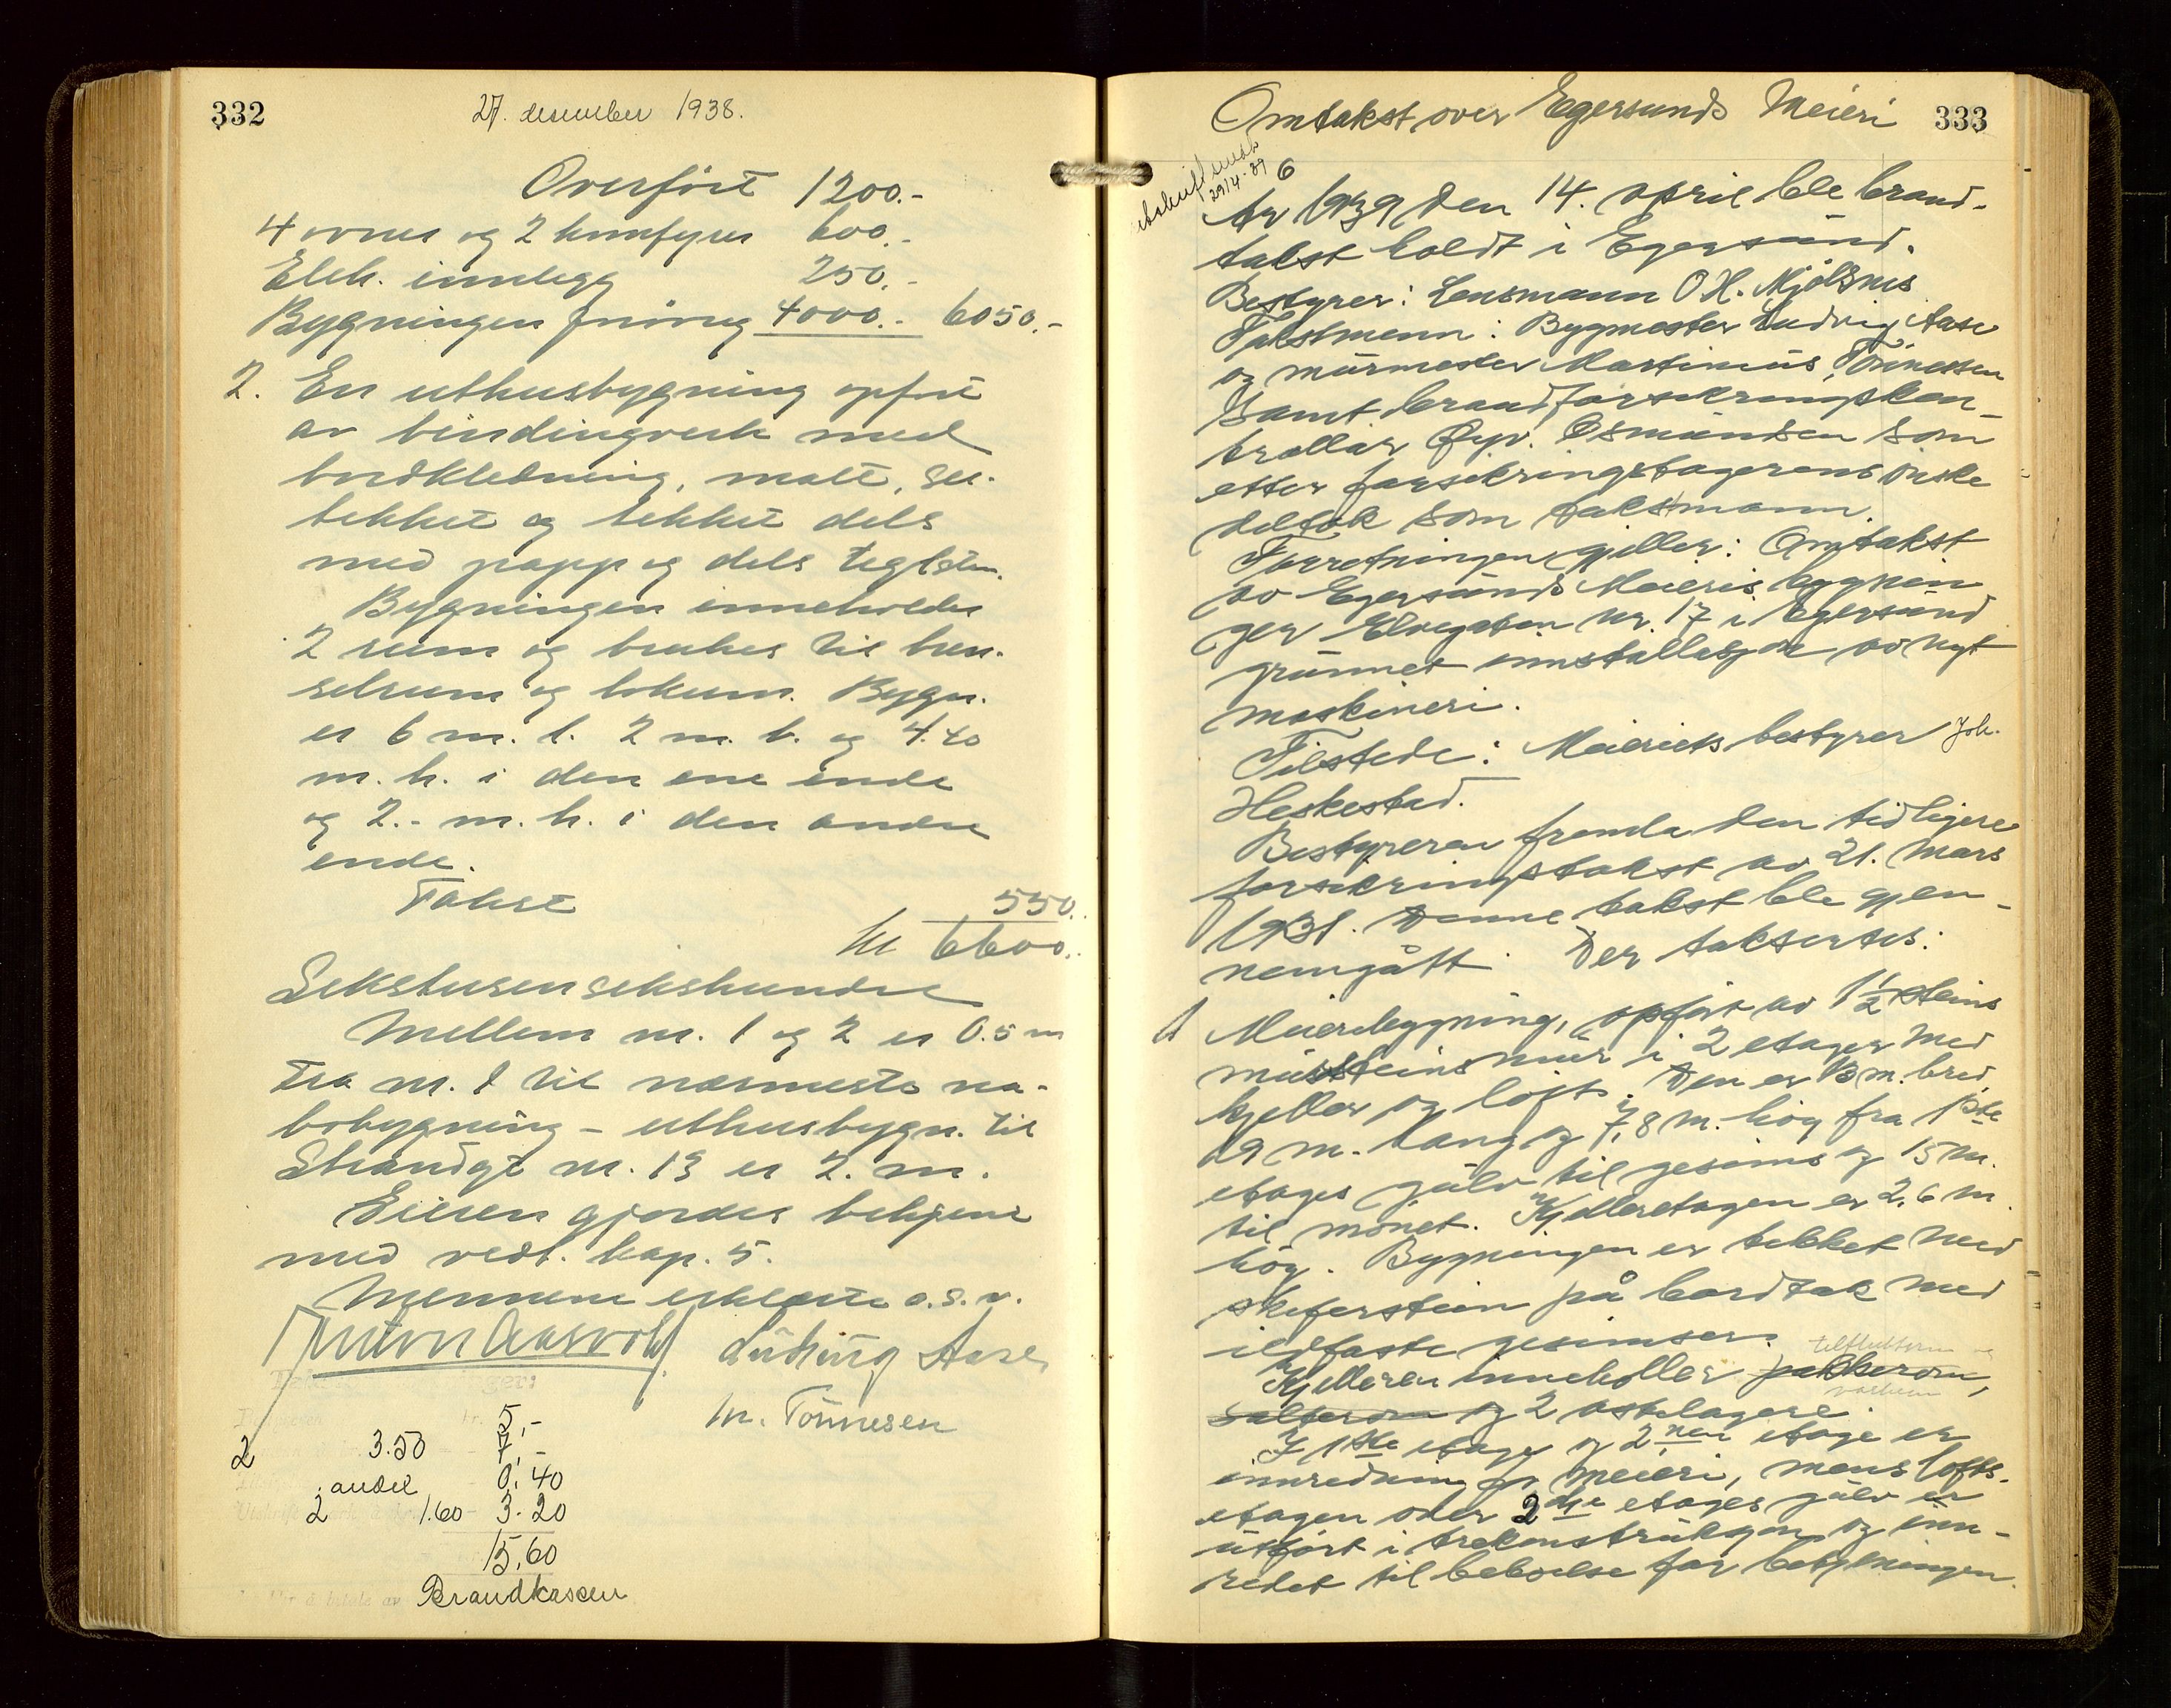 332
27. desember 1938.
Overført 1200.-
4 ovner og 2 komfyrer 600.-
Elek. innlegg 250.-
Bygningen forøvrig 4000.- 6050.-
2. En uthusbygning opført
av bindingverk med
bordkledning, malt,
tekket og tekket dels
med papp og dels teglsten.
Bygningen inneholder
2 rum og brukes til bren-
selsrum og lokum. Bygn.
er 6 m. l. 2 m. b. og 4.40
m. h. i den ene ende
og 2.- m. h. i den andre
ende.
Takst 550.
kr 6600.-
Sekstusensekshundre
Mellem nr. 1 og 2 er 0.5 m
Fra nr. 1 til nærmeste na-
bobygning - uthusbygn. til
Strandgt nr. 13 er 2. m.
Eieren gjordes bekjent
med vedt. kap. 5.
Mennene erklærte o.s.v.
Ludvig Aase
M. Tönnesen
5,-
2 3.50 - 7,-
andel 0,40
2 1.60 - 3.20
15,60
Brandkassen
Omtakst over Egersunds Meieri 333
Utskrift sendt
29/4-39
6
År 1939 den 14. april ble brand-
takst holdt i Egersund.
Bestyrer: Lensmann O. H. Mjølsnes
Takstmenn: Bygmester Ludvig Aase
og murmester Martinius Tönnessen
samt brandforsikringskon-
trollør Øyv. Osmundsen som
etter forsikringstagerens önske
deltok som takstmann.
Forretningen gjeller: Omtakst
av Egersunds Meieris bygnin
ger Elvegaten nr. 17 i Egersund
grunnet innstallasjon av nyt
maskineri.
Tilstede: Meieriets bestyrer Joh.
Heskestad.
Bestyreren fremla den tidligere
forsikringstakst av 21. mars
1931. Denne takst ble gjen-
nemgått. Der taksertes:
1 Meieribygning, opført av 1½ steins
mursteins mur i 2 etager med
kjeller og loft. Den er 13 m. bred,
19 m. lang og 7,8 m. høg fra 1ste
etages gulv til gesims og 15 m.
til mönet. Kjelleretagen er 2,6 m
høg. Bygningen er tekket med
skiferstein på bordtak med
ildfaste gesimser.
tilfluktsrum og
Kjelleren inneholler pakkerom,
vaskerum
salterom og 2 ostelagere.
I 1ste etage og 2nen etage er
innredning for meieri, mens lofts-
etagen over 2dre etages gulv er
utført i trekonstruksjon og inn-
redet til beboelse for betjeningen.